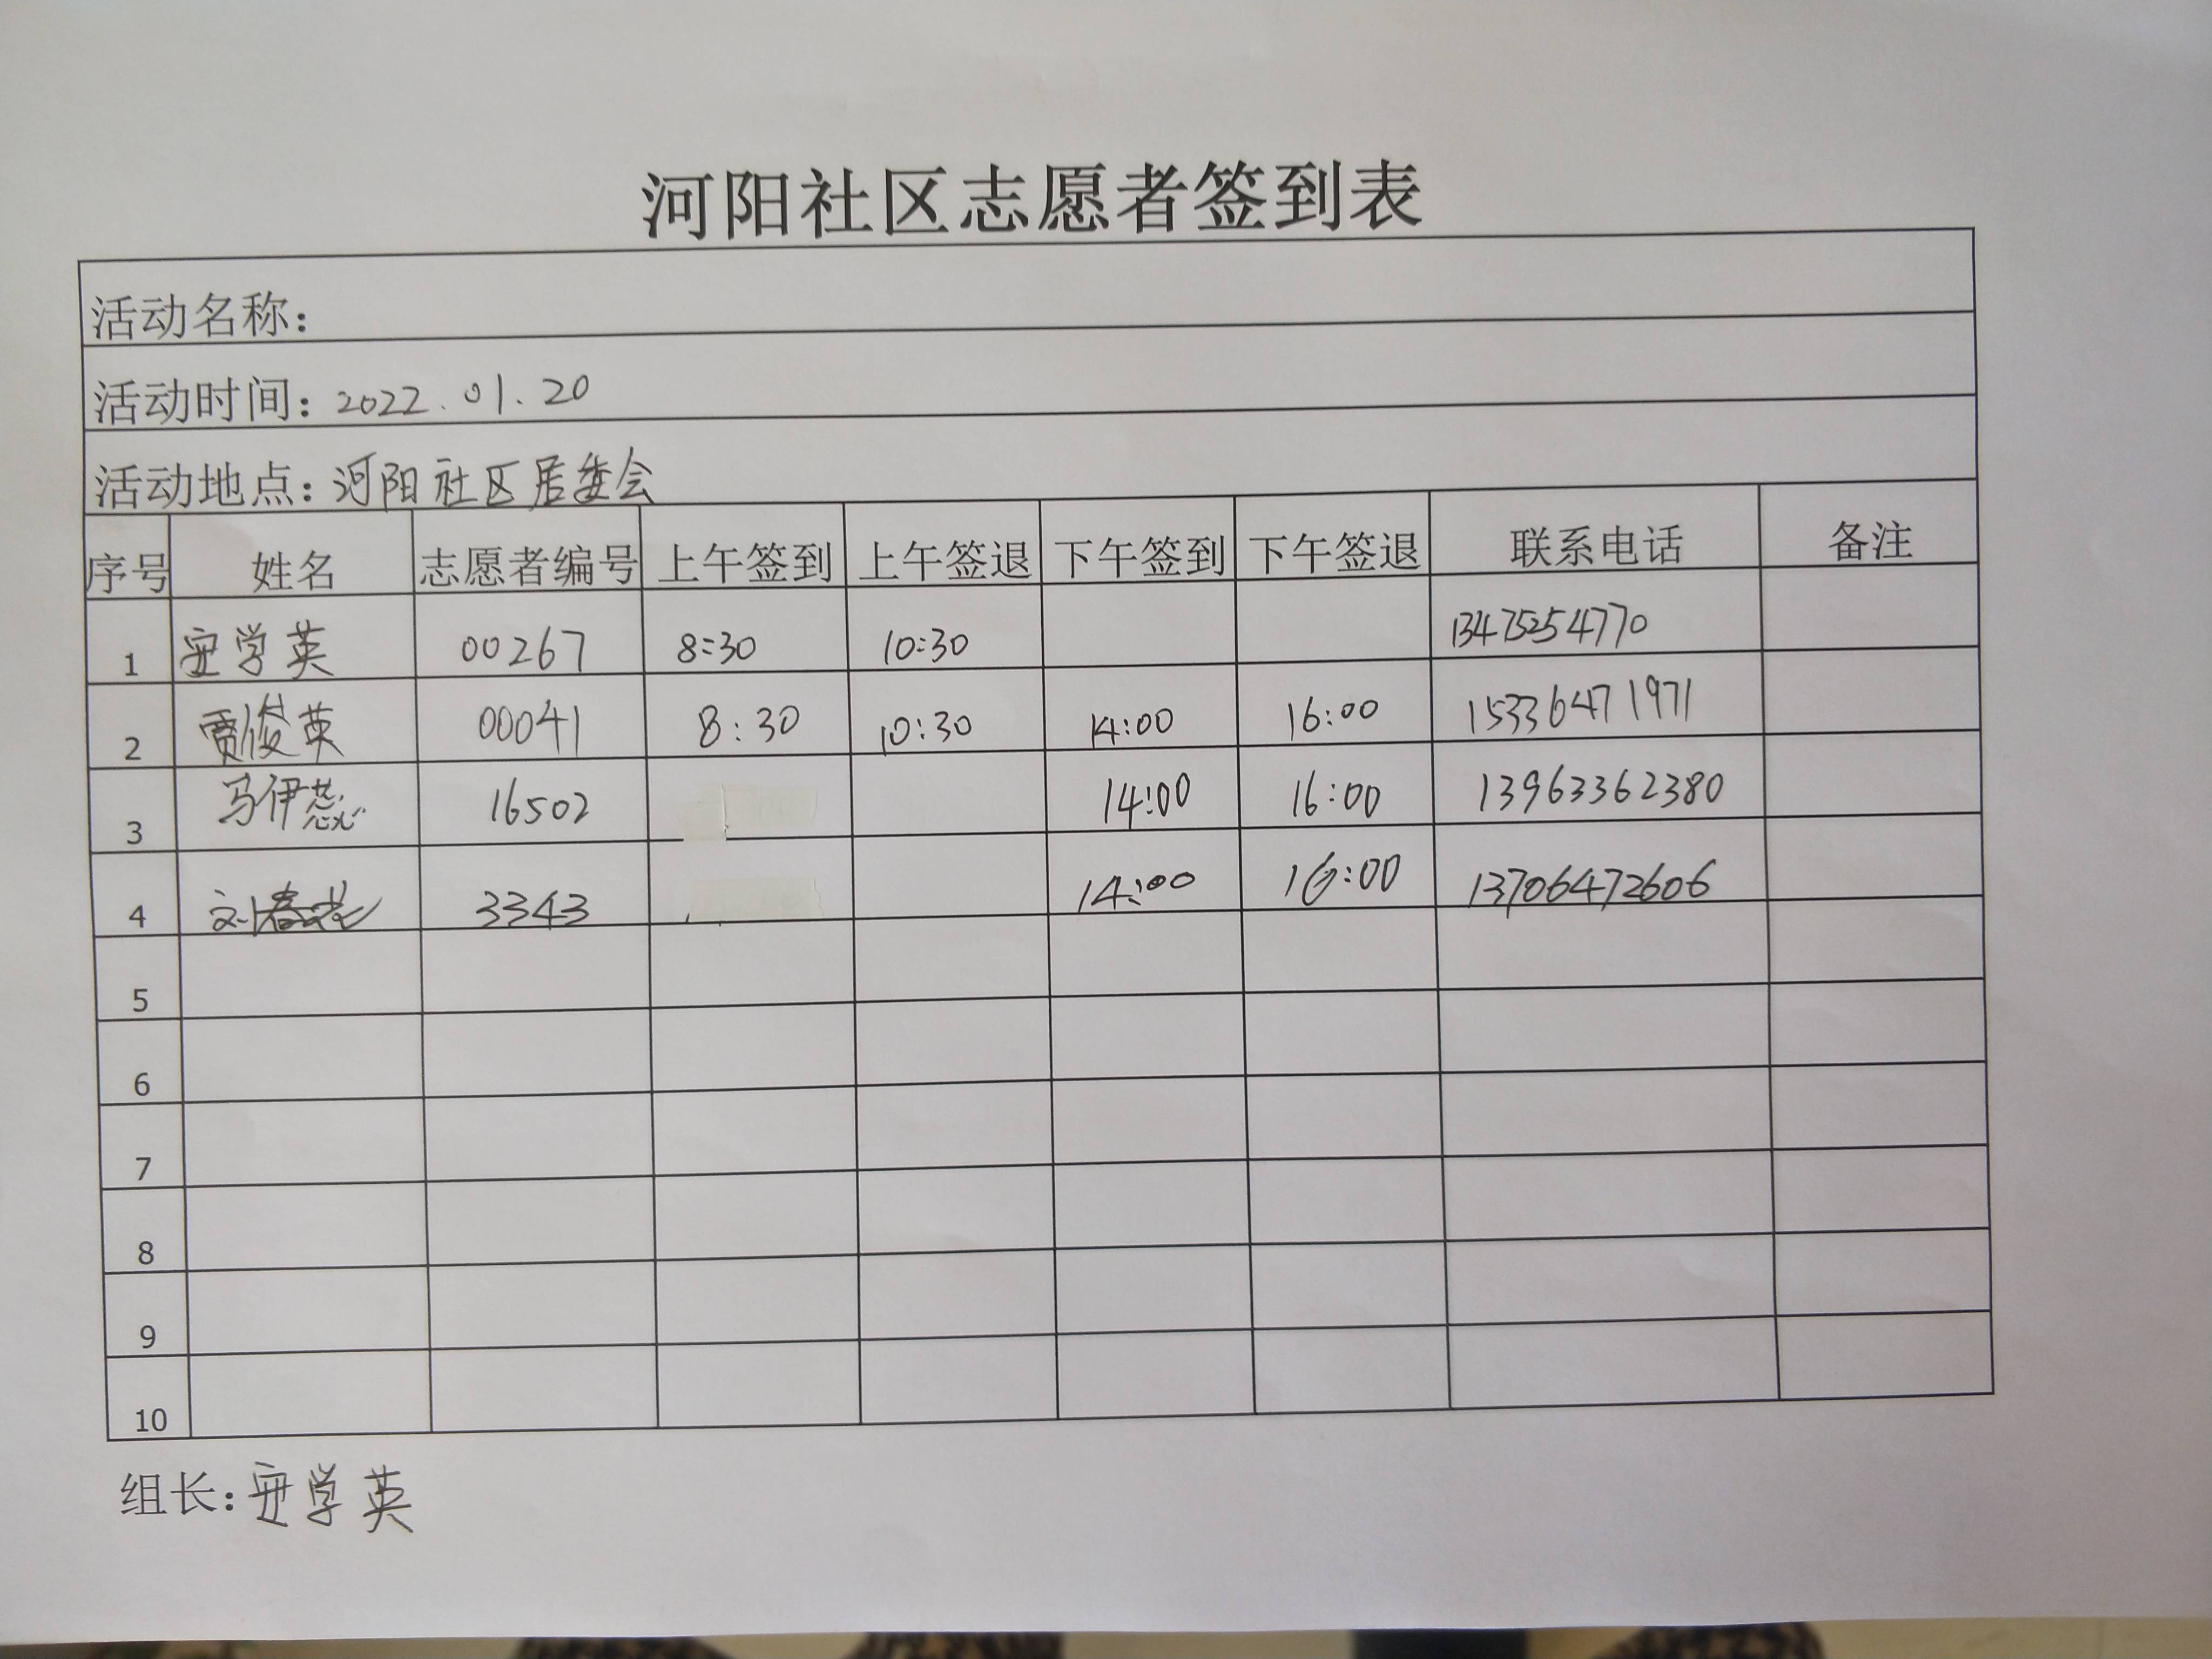 河阳社区志愿者签到表
活动名称：
活动时间：2022.01.20
活动地点：河阳社区居委会
序号 姓名 志愿者编号 上午签到 上午签退 下午签到 下午签退 联系电话 备注
1 安学英 00267 8:30 10:30 13475254770
2 贾俊英 00041 8:30 10:30 14:00 16:00 15336471971
3 马伊蕊 16502 14:00 16:00 13963362380
4 刘春 3343 14:00 16:00 13706472606
5
6
7
8
9
10
组长：安学英